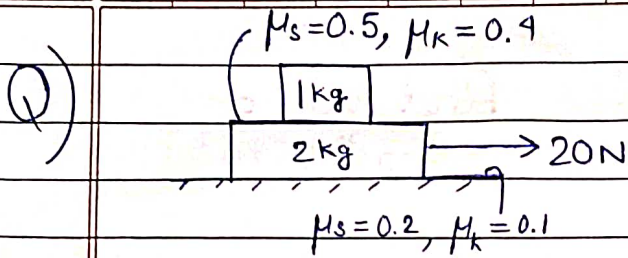 μs=0.5, μK=0.4
Q)
1kg
2kg
20N
μs=0.2, μk=0.1